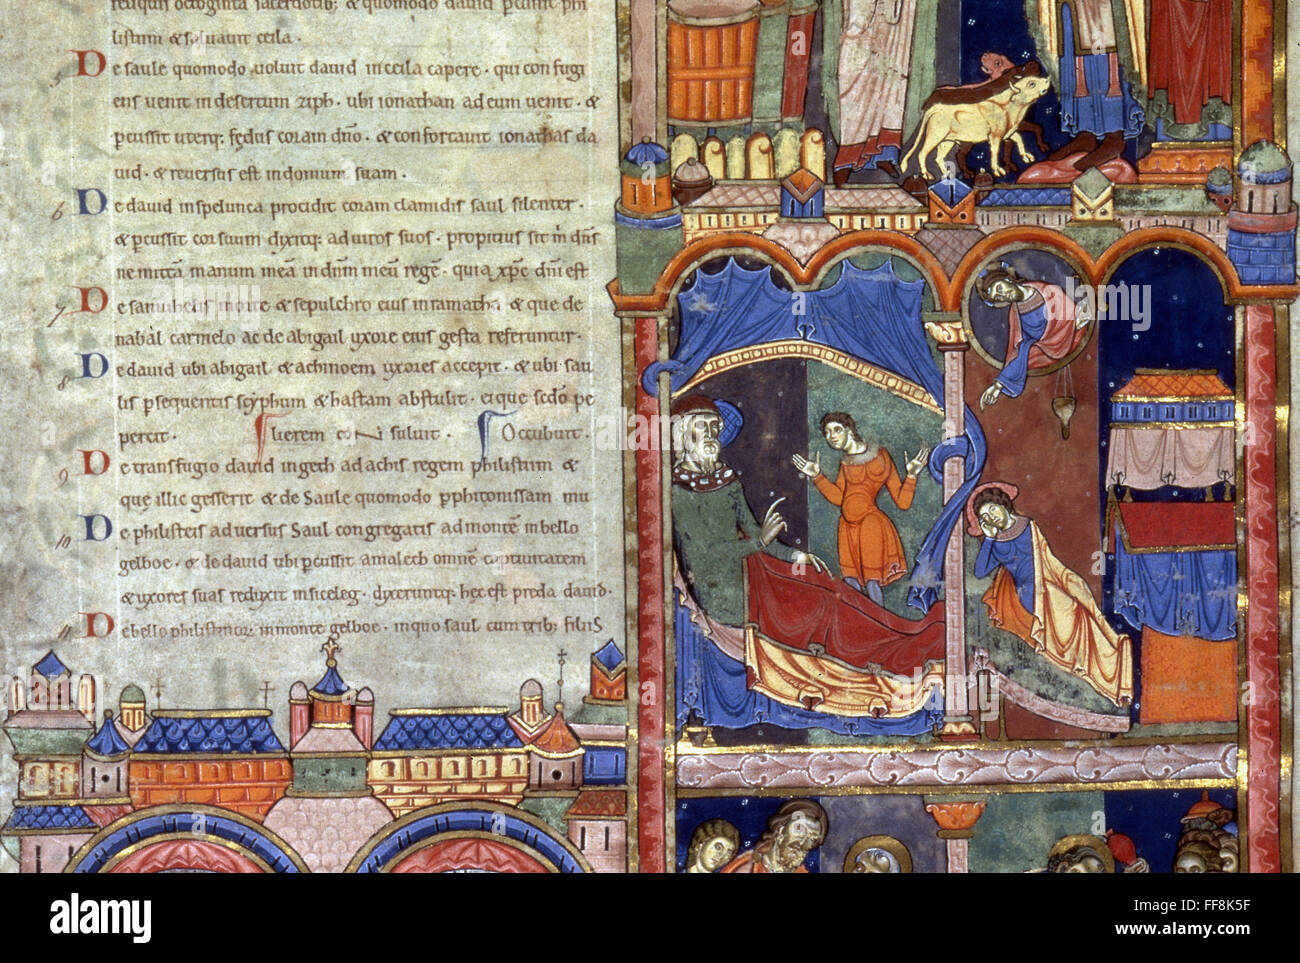 reliqui octoginta sacerdotib; & quomodo david pcussit phi
listum & salvavit ceila.
5 De saule quomodo voluit david in ceila capere. qui con fugi
ens venit in desertum ziph. ubi ionathan ad eum venit. &
pcussit uterq; fędus coram dno. & confortavit ionathas da
vid. & reversus est in domum suam.
6 De david in spelunca procidit coram clamidis saul silenter.
& pcussit cor suum dixitq; ad viros suos. propitius sit m dns
ne mittā manum meā in dnm meū regē. quia xpe dni est
7 De samuhelis morte & sepulchro eius in ramatha & que de
nabal carmelo ac de abigail uxore eius gesta referuntur.
8 De david ubi abigail & achinoem uxores accepit. & ubi sau
lis psequentis scyphum & hastam abstulit. ei que sedo pe
percit. occubuit.
9 De transfugio david in geth ad achis regem philistiim &
que illic gesserit & de Saule quomodo pphitonissam mu
10 De philisteis adversus Saul congregatis ad montē in bello
gelboe. & de david ubi pcussit amalech omnē captivitatem
& uxores suas reduxit in siceleg. dixeruntq; hec est preda david.
11 De bello philistinor; in monte gelboe. in quo saul cum trib; filiis
alamy
alamy
Image ID: FF8K5F
www.alamy.com